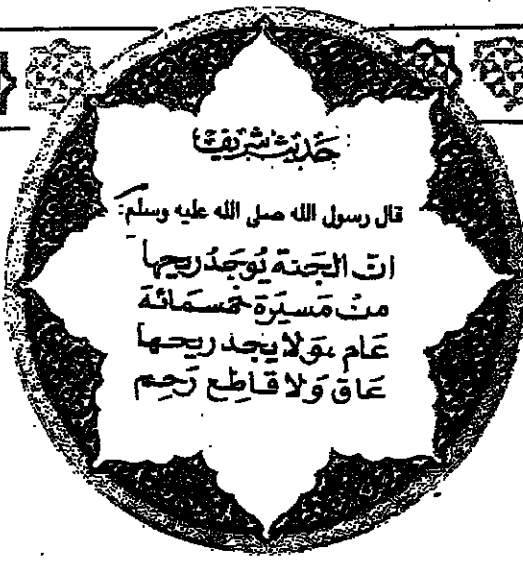 حديث شريف
قال رسول الله صلى الله عليه وسلم:
انّ الجَنة يُوجَدُ ريحها
منْ مَسيَرة خمسَمائة
عَام ،وَلا يجد ريحها
عَاق وَلا قاطِع رَحِم